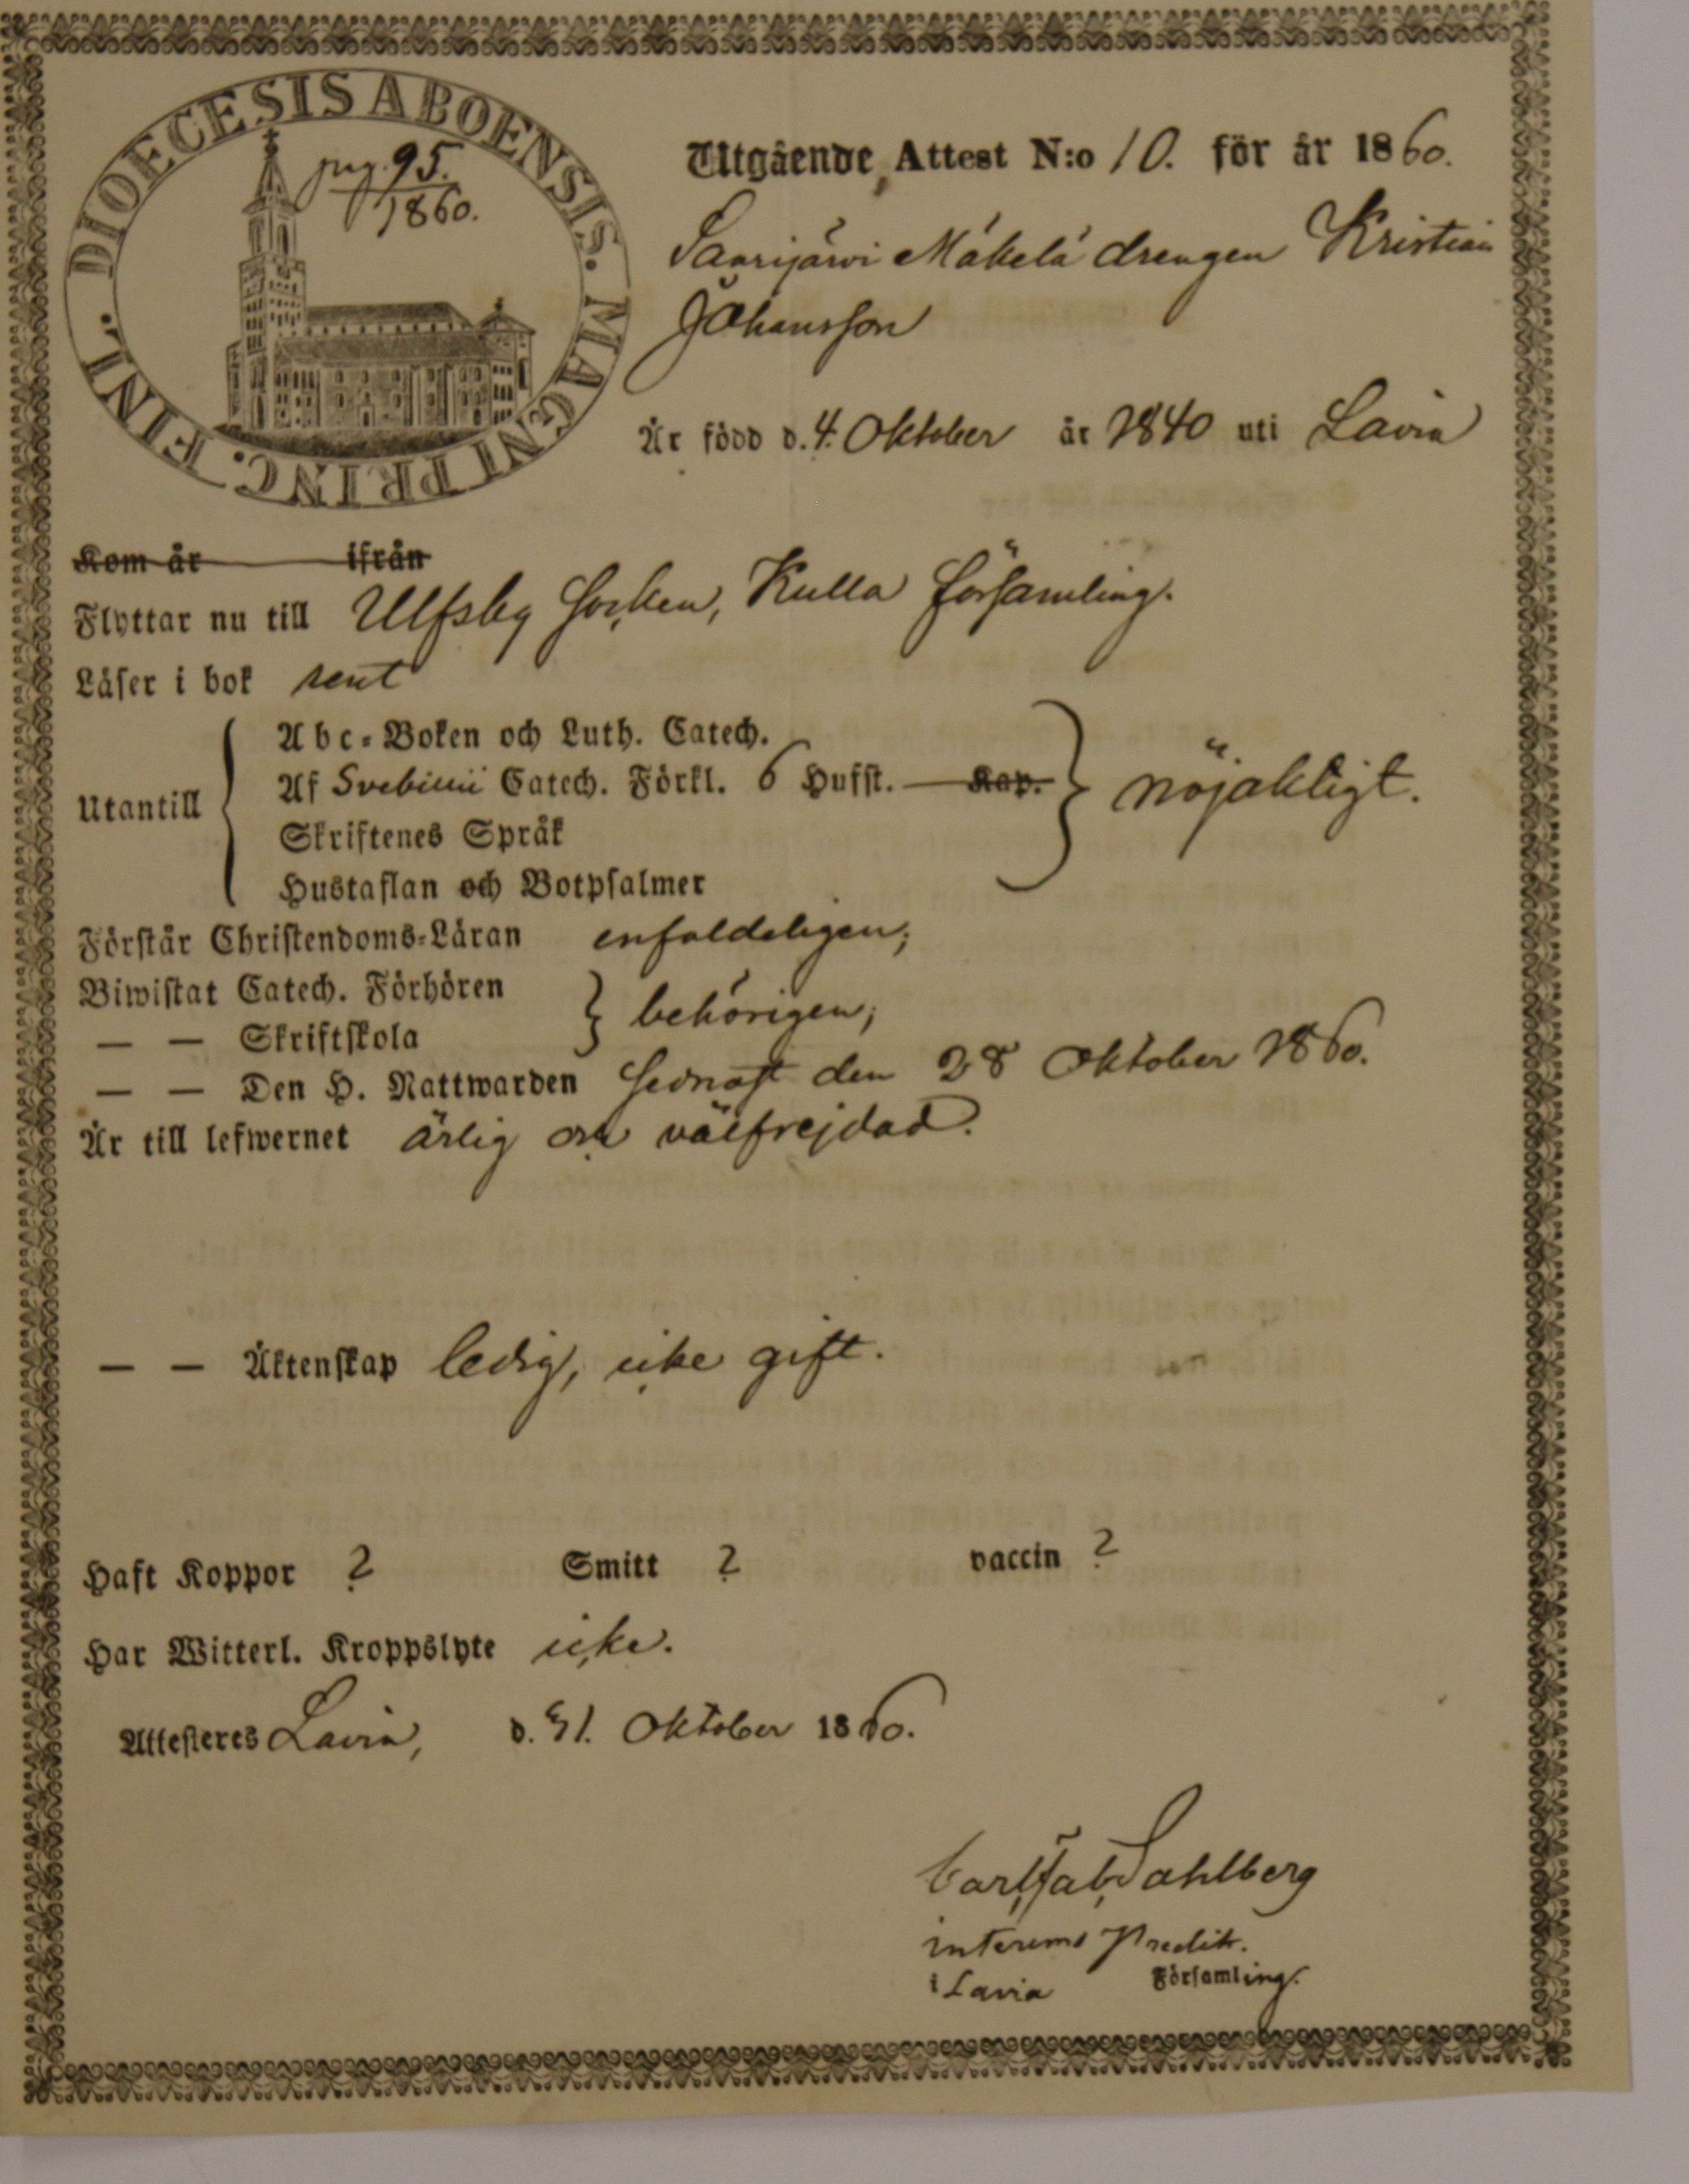 DIOECESIS ABOENSIS. MAGNI PRINC. FINL.
pag. 95.
1860.
Utgående Attest N:o 10. för år 1860.
Saarijärvi Mäkelä drengen Kristian
Johansson
Är född d. 4. Oktober år 1840 uti Lavia
Kom år ifrån
Flyttar nu till Ulfsby socken, Kulla församling.
Läser i bok rent
Utantill
Abc-Boken och Luth. Catech.
Af Svebilii Catech. Förkl. 6 Hufst. Kap.
Skriftenes Språk
Hustaflan och Botpsalmer
nöjaktigt.
Förstår Christendoms-Läran enfaldeligen;
Biwistat Catech. Förhören
— — Skriftskola
behörigen;
— — Den H. Nattwarden sednast den 28 Oktober 1860.
Är till lefwernet ärlig och välfrejdad.
— — Äktenskap ledig, icke gift.
Haft Koppor ? Smitt ? vaccin ?
Har Witterl. Kroppslyte icke.
Attesteres Lavia, d. 31. Oktober 1860.
Carl Jab Sahlberg
interims Predik.
i Lavia Församling.